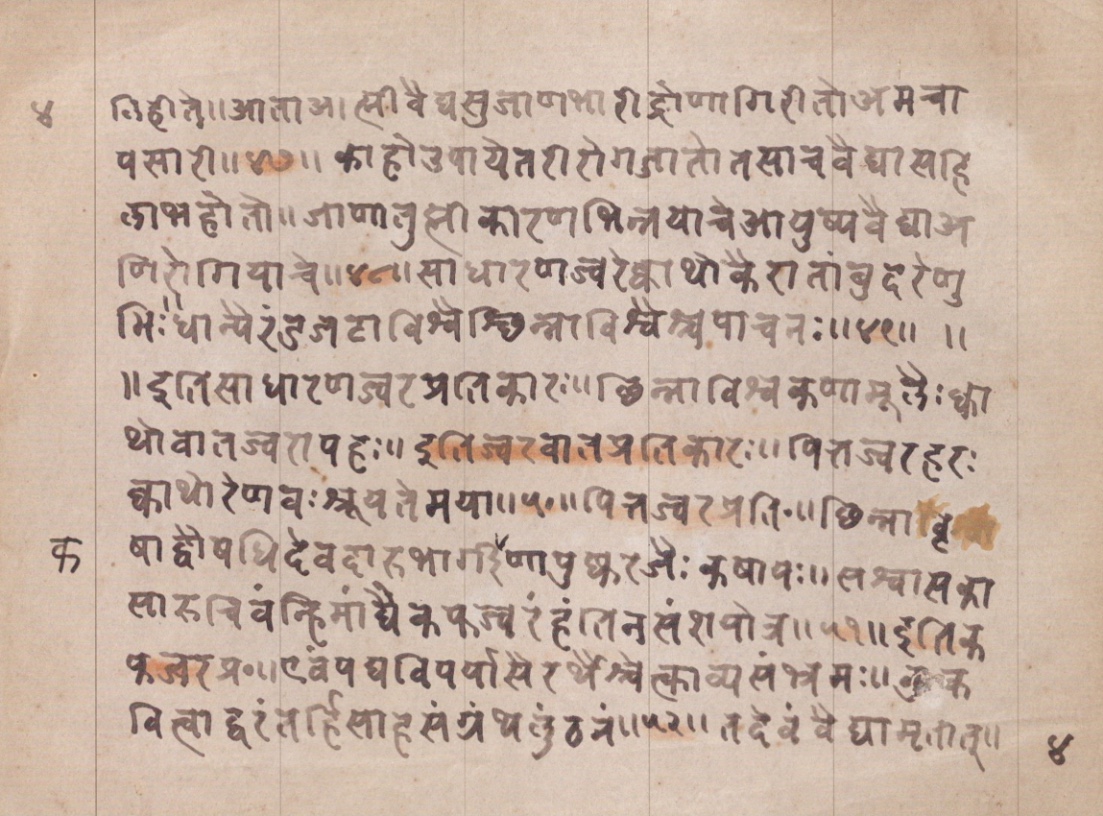 ४ तिहीते॥आताआत्मीवैद्यसुजाणभारीद्रोणागिरीतोअमचा
पसारी॥४७॥ काहोउपायेतरीरोगजातोतसाचवैद्यासहि
लाभहोतो॥जाणातुह्मीकारणभिन्नयाचेआयुष्यवैद्याअ
णिरोगियाचे॥४८॥साधारणज्वरेक्वाथोकैरातांबुदरेणु
भिः॥धान्यैरंडजटाविश्वैश्छिन्नाविश्वैश्चपाचनः॥४९॥ ॥
॥इतिसाधारणज्वरप्रतिकारः॥छिन्नाविश्वकणामूलैःक्वा
थोवातज्वरापहः॥इतिज्वरवातप्रतिकारः॥पित्तज्वरहरः
क्वाथोरेणवःश्रूयतेमया॥५०॥पित्तज्वरप्रति०॥छिन्नावृ
क षाद्वौषधिदेवदारुभार्गीकणापुष्करजैःकषायः॥सश्वासका
सारुचिवंन्हिमांद्यैकफज्वरंहंतिनसंशयोत्र॥५१॥इतिक
फज्वरप्र०॥एवंपद्यविपर्यासैरर्थैश्चेत्काव्यसंभ्रमः॥ क
वित्वाद्वरंतर्हिसाहसंग्रंथलुंठनं॥५२॥तदेवंवैद्यामृतात्॥
४